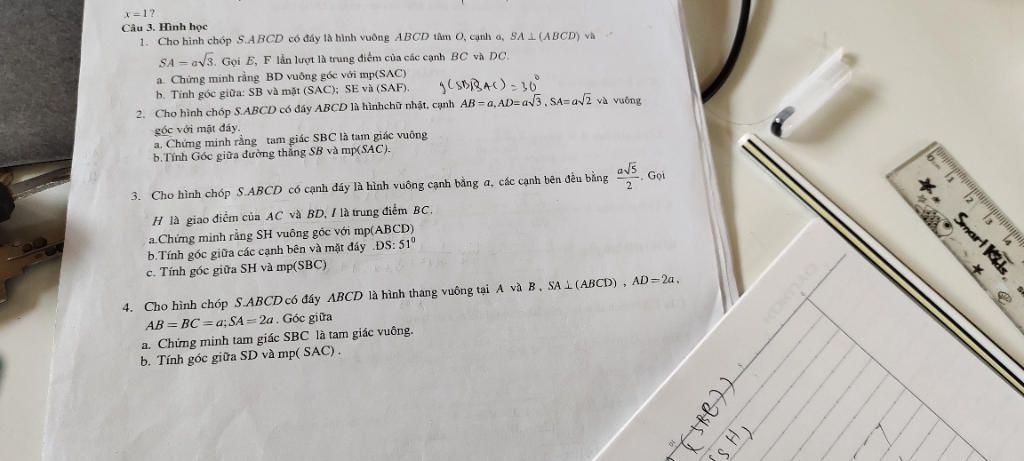 x = 1?
Câu 3. Hình học
1. Cho hình chóp S.ABCD có đáy là hình vuông ABCD tâm O, cạnh a, SA ⊥ (ABCD) và
SA = a√3. Gọi E, F lần lượt là trung điểm của các cạnh BC và DC.
a. Chứng minh rằng BD vuông góc với mp(SAC)
b. Tính góc giữa: SB và mặt (SAC); SE và (SAF).
= 30⁰
2. Cho hình chóp S.ABCD có đáy ABCD là hìnhchữ nhật, cạnh AB = a, AD= a√3, SA= a√2 và vuông
góc với mặt đáy.
a. Chứng minh rằng tam giác SBC là tam giác vuông
b.Tính Góc giữa đường thẳng SB và mp(SAC).
3. Cho hình chóp S.ABCD có cạnh đáy là hình vuông cạnh bằng a, các cạnh bên đều bằng a√5/2. Gọi
H là giao điểm của AC và BD, I là trung điểm BC.
a.Chứng minh rằng SH vuông góc với mp(ABCD)
b.Tính góc giữa các cạnh bên và mặt đáy .ĐS: 51⁰
c. Tính góc giữa SH và mp(SBC)
4. Cho hình chóp S.ABCD có đáy ABCD là hình thang vuông tại A và B, SA ⊥ (ABCD) , AD = 2a,
AB = BC = a; SA = 2a. Góc giữa
a. Chứng minh tam giác SBC là tam giác vuông.
b. Tính góc giữa SD và mp( SAC) .
Smart Kids